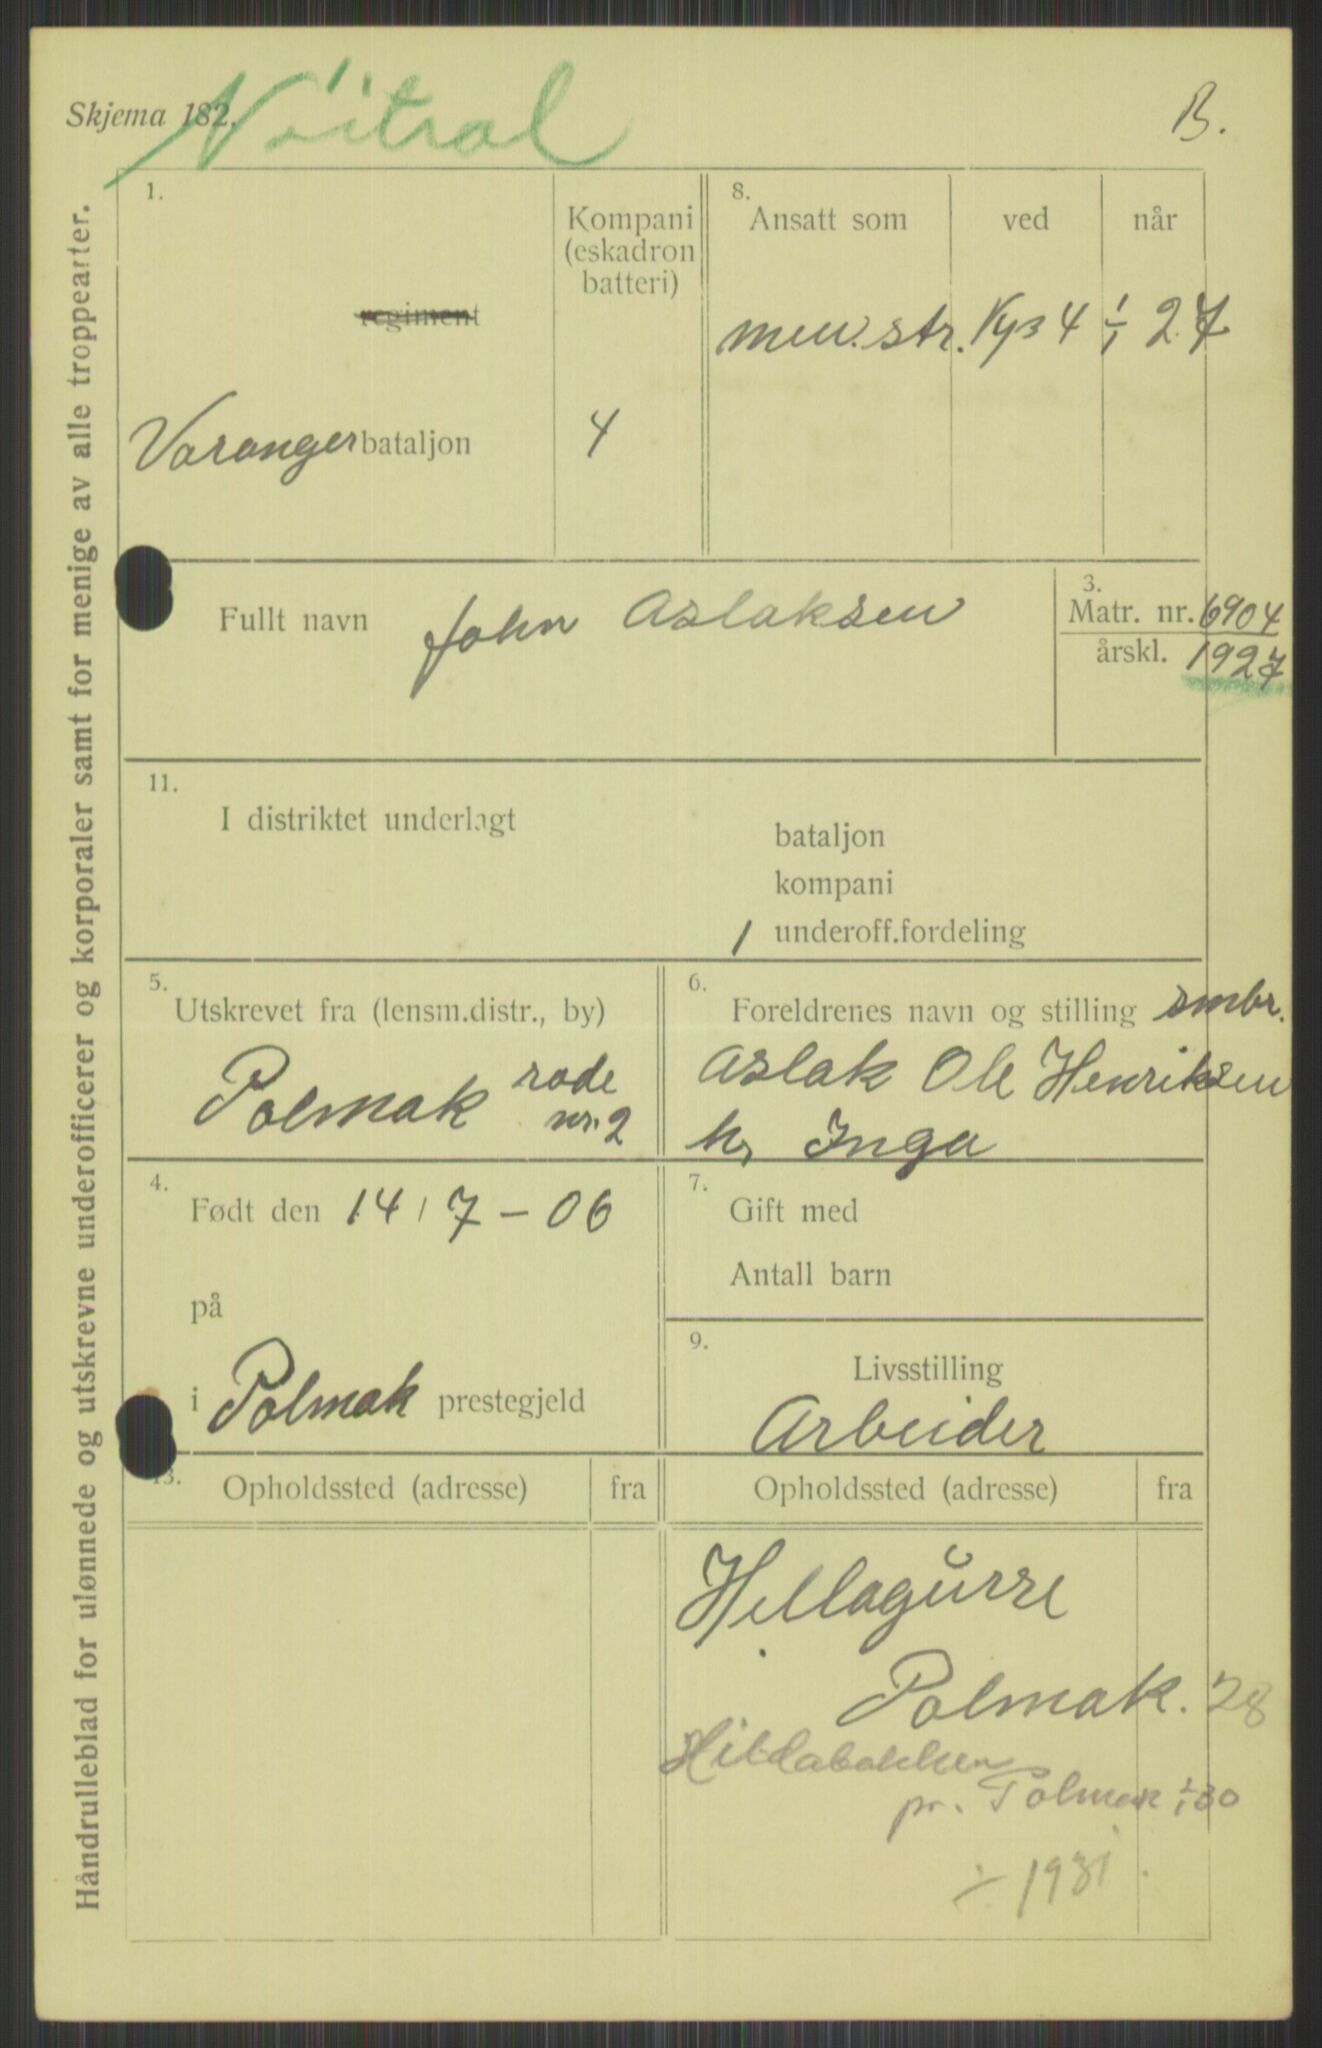 Skjema 182.
Nøitral
B.
Håndrulleblad for ulønnede og utskrevne underofficerer og korporaler samt for menige av alle troppearter.
1.
regiment
Kompani
(eskadron
batteri)
Varanger bataljon
4
8.
Ansatt som
ved
når
men. str.
4 1/1 27
Fullt navn John Aslaksen
3.
Matr. nr. 6904
årskl. 1927
11.
I distriktet underlagt
bataljon
kompani
1 underoff.fordeling
5.
Utskrevet fra (lensm.distr., by)
Polmak rode
nr. 2
6.
Foreldrenes navn og stilling smbr.
Aslak Ole Henriksen
h, Inga
4.
Født den 14/7-06
på
i Polmak prestegjeld
7.
Gift med
Antall barn
9.
Livsstilling
Arbeider
13.
Opholdssted (adresse)
fra
Opholdssted (adresse)
fra
Hillagurre
Polmak. 28
Hildabakken
pr. Polmak 1/1 30
÷ 1931.